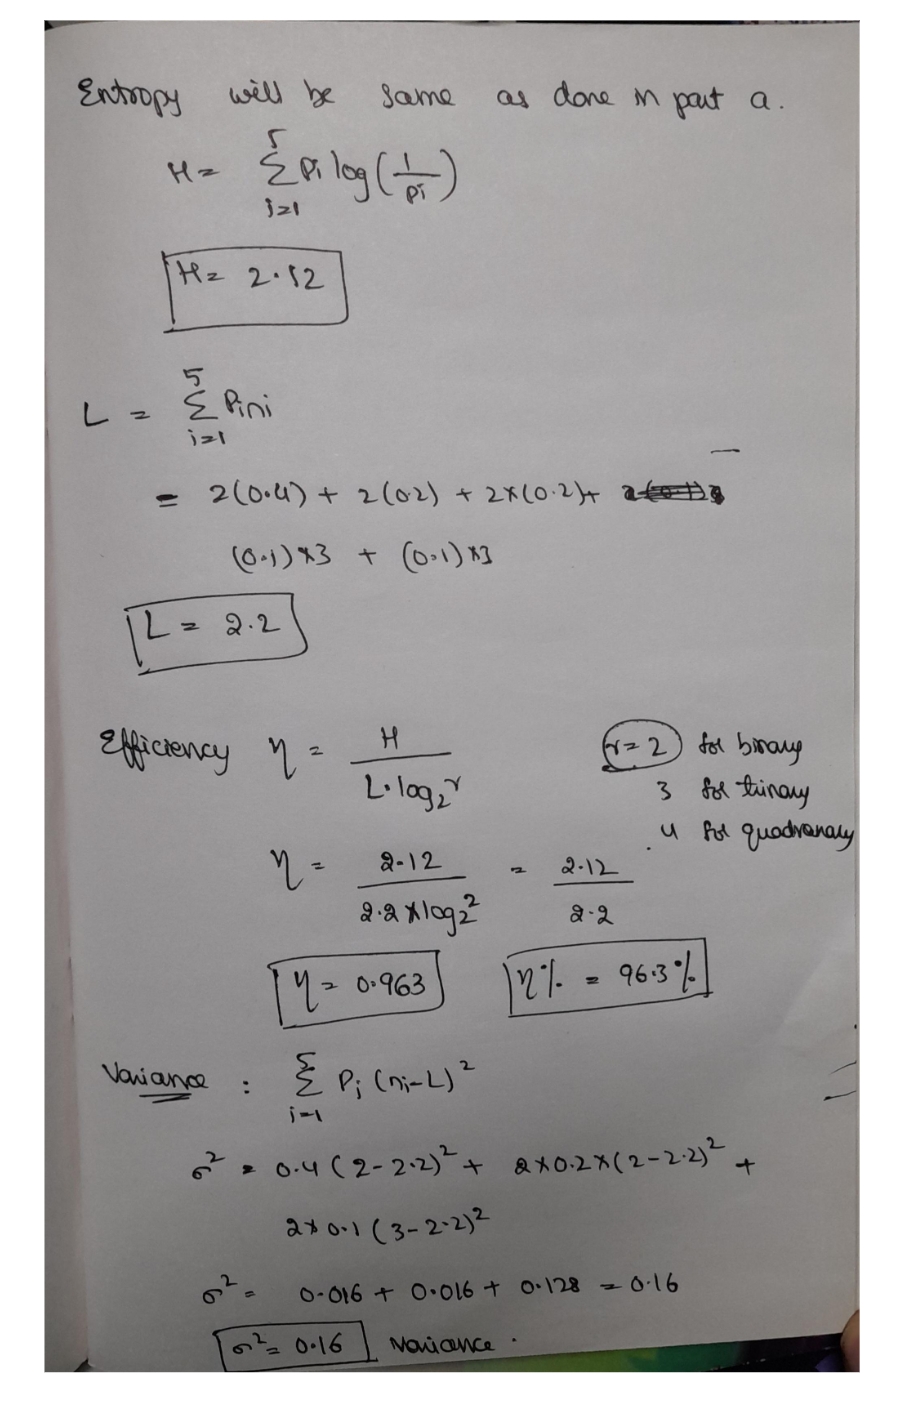 Entropy will be same as done in part a.
H = 5 Σ i=1 Pi log(1/Pi)
H = 2.12
L = 5 Σ i=1 Pini
= 2(0.4) + 2(0.2) + 2×(0.2)+
(0.1)×3 + (0.1)×3
L = 2.2
Efficiency η = H / L.log₂r
r=2 for binary
3 for trinary
4 for quadranary
η = 2.12 / 2.2×log₂2 = 2.12 / 2.2
η = 0.963 η% = 96.3%
Variance : 5 Σ i=1 Pi (ni-L)²
σ² = 0.4 (2-2.2)² + 2×0.2×(2-2.2)² +
2×0.1 (3-2.2)²
σ² = 0.016 + 0.016 + 0.128 = 0.16
σ² = 0.16 Variance.